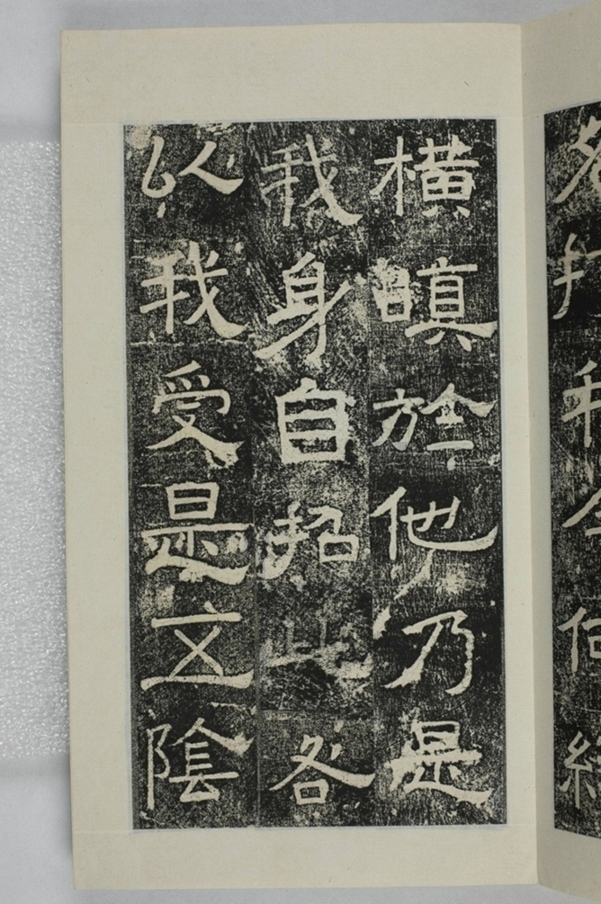 橫瞋於他乃是
我身自招此各
以我受是文陰